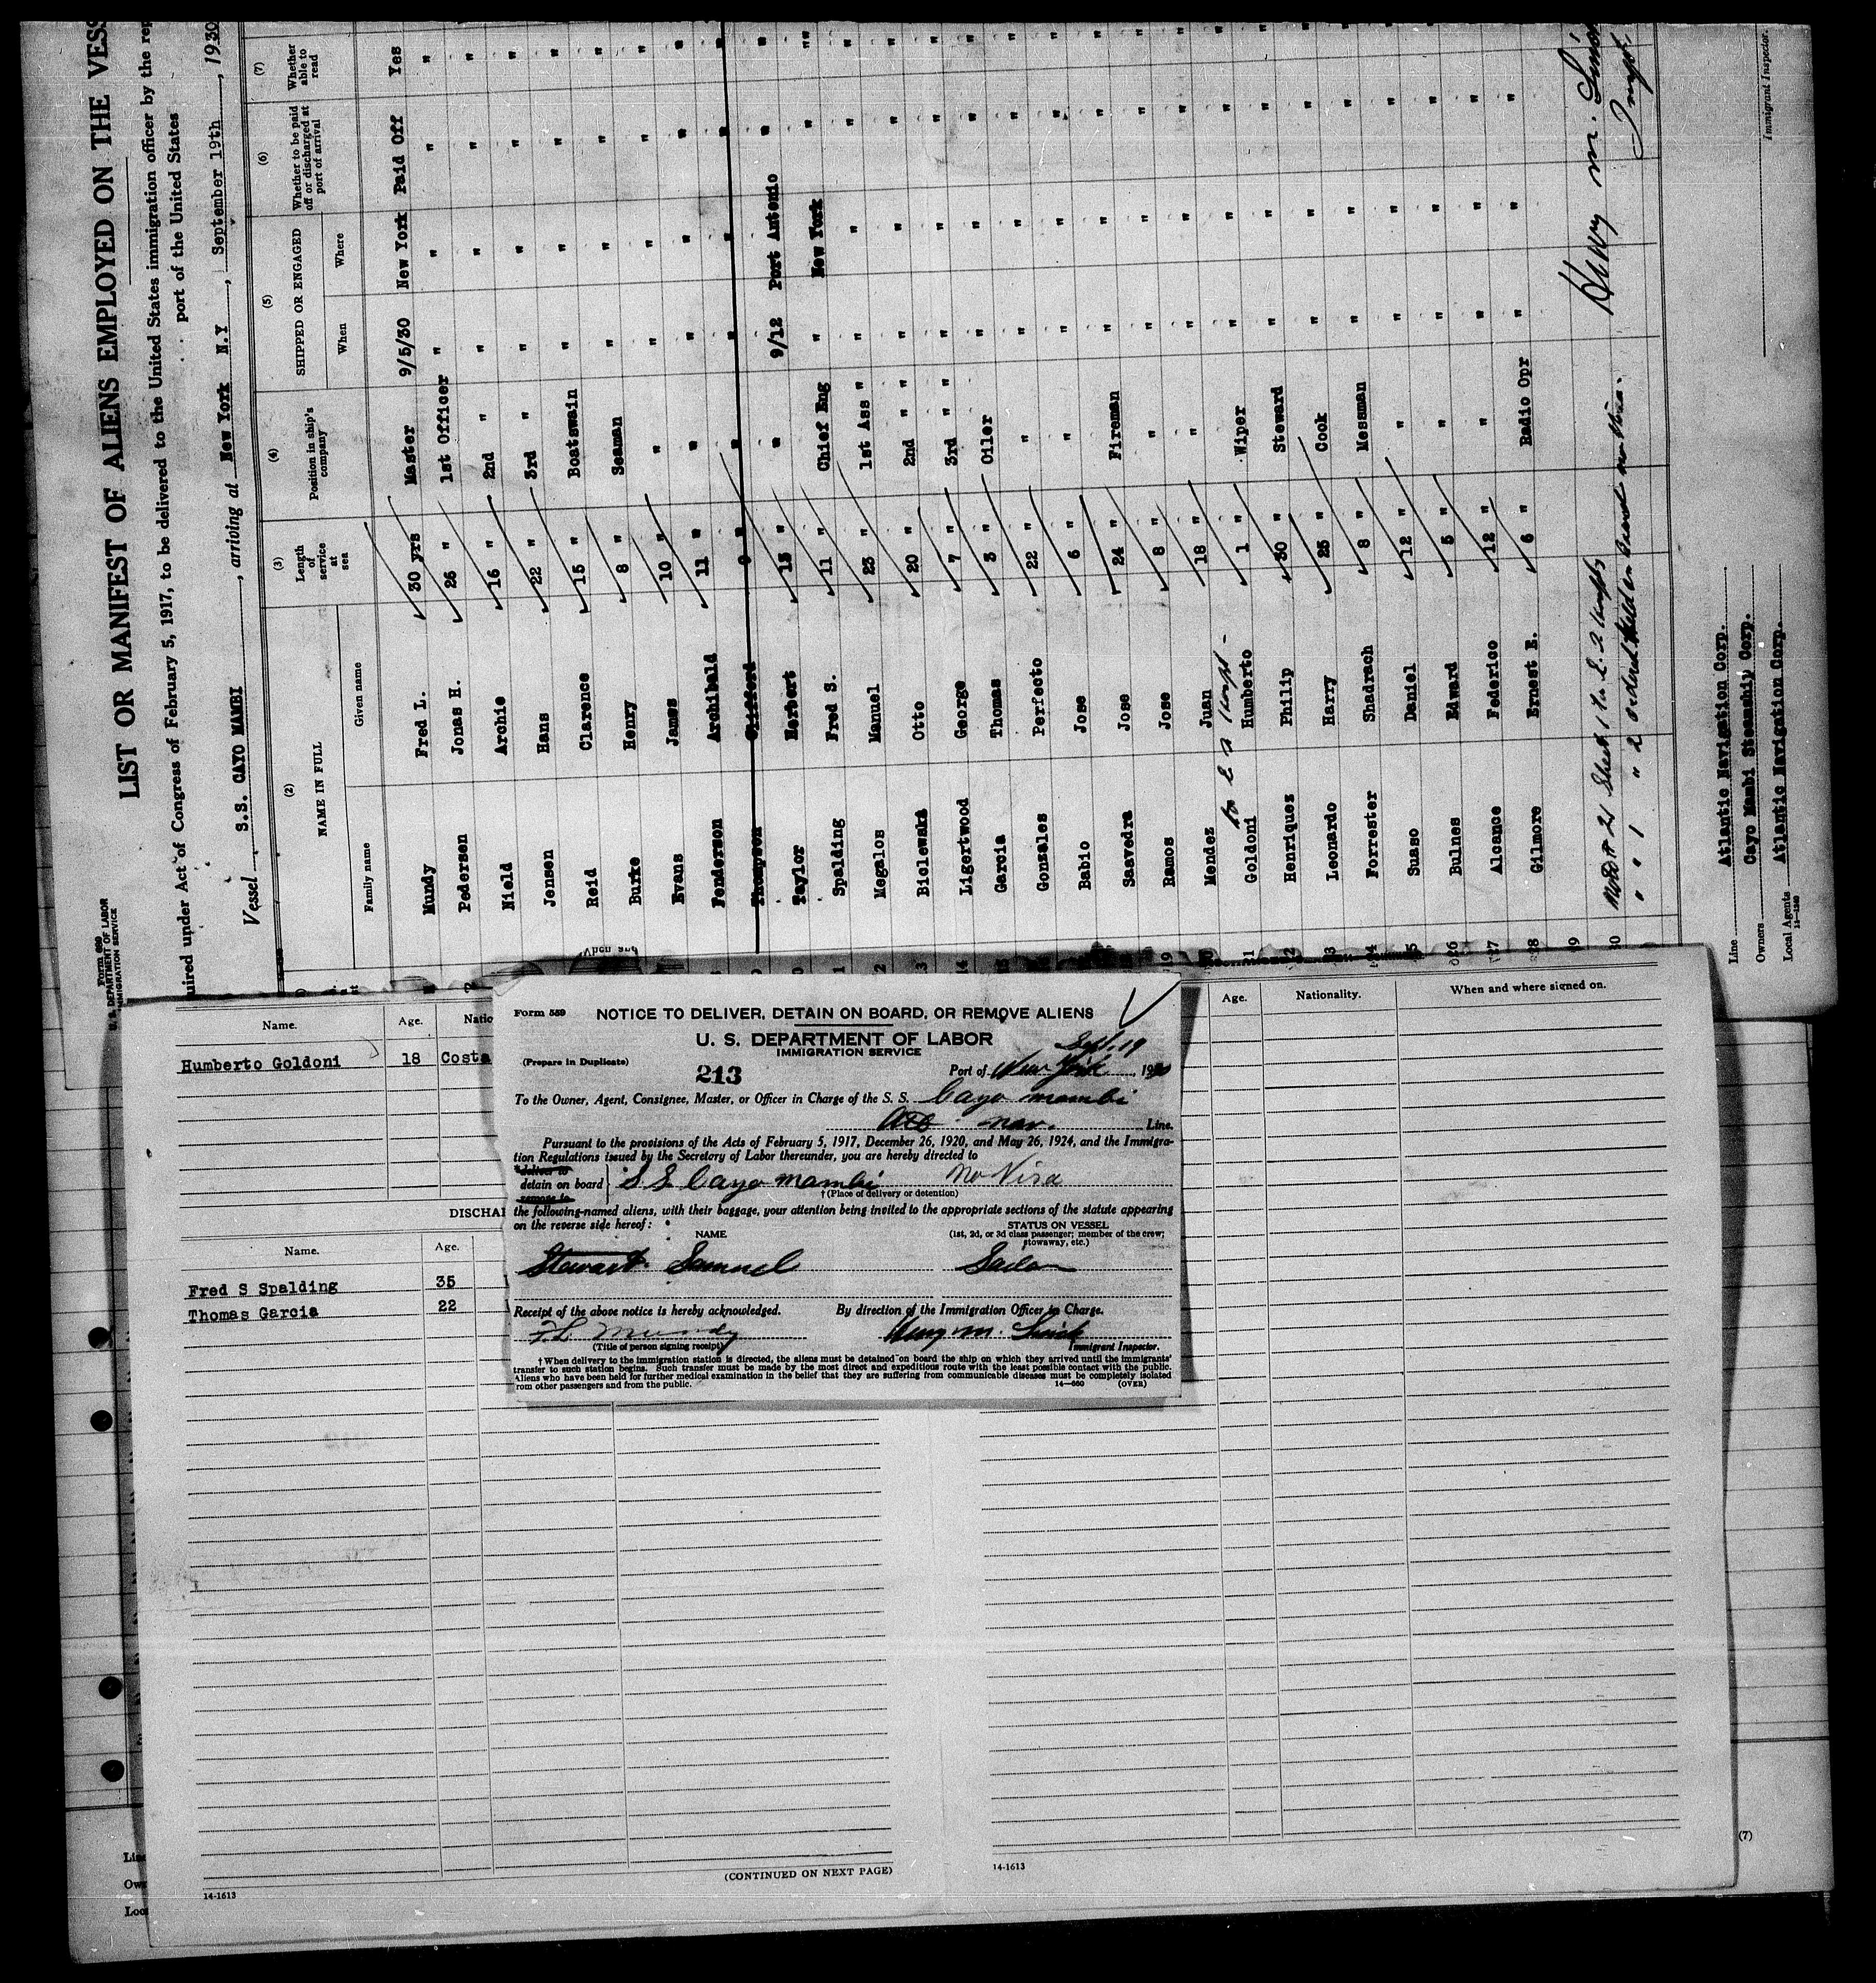 LIST OR MANIFEST OF ALIENS EMPLOYED ON THE VESS
Form 689
U. S. DEPARTMENT OF LABOR
IMMIGRATION SERVICE
uired under Act of Congress of February 5, 1917, to be delivered to the United States immigration officer by the rep
port of the United States
Vessel S.S. CAYO MAMBI, arriving at New York N.Y, September 19th, 1930
(2) (3) (4) (5) (6) (7)
NAME IN FULL Length of service at sea Position in ship's company SHIPPED OR ENGAGED Whether to be paid off or discharged at port of arrival Whether able to read
Family name Given name When Where
Mundy Fred L. 30 yrs Master 9/5/30 New York Paid Off Yes
Pedersen Jonas H. 26 " 1st Officer " " " "
Nield Archie 16 " 2nd " " " " "
Jensen Hans 22 " 3rd " " " " "
Reid Clarence 15 " Boatswain " " " "
Burke Henry 8 " Seaman " " " "
Evans James 10 " " " " " "
Fenderson Archibald 11 " " " " " "
Thompson Clifford 9 " " " " " "
Taylor Herbert 13 " " 9/12 Port Antonio " "
Spalding Fred S. 11 " Chief Eng " New York " "
Megalos Manuel 23 " 1st Ass " " " " "
Biclewska Otto 20 " 2nd " " " " " "
Ligertwood George 7 " 3rd " " " " " "
Garcia Thomas 3 " Oiler " " " "
Gonzales Perfecto 22 " " " " " "
Babio Jose 6 " " " " " "
Saavedra Jose 24 " Fireman " " " "
Ramos Jose 8 " " " " " "
Mendez Juan 18 " " " " " "
Goldoni Humberto 1 " Wiper " " " "
Henriquez Philip 30 " Steward " " " "
Leonardo Harry 25 " Cook " " " "
Forrester Shadrach 8 " Mesman " " " "
Suaso Daniel 12 " " " " " "
Bulnes Edward 5 " " " " " "
Alcance Federico 12 " " " " " "
Gilmore Ernest E. 6 " Radio Opr " " " "
Henry M.
Immigrant Inspector.
Line Atlantic Navigation Corp.
Owners Cayo Mambi Steamship Corp.
Local Agents Atlantic Navigation Corp.
14-1240
Name. Age. Natio
Humberto Goldoni 18 Costa
Age. Nationality. When and where signed on.
DISCHA
Name. Age.
Fred S Spalding 35
Thomas Garcia 22
Form 559 NOTICE TO DELIVER, DETAIN ON BOARD, OR REMOVE ALIENS
U. S. DEPARTMENT OF LABOR
IMMIGRATION SERVICE
(Prepare in Duplicate)
213
Sept. 19
Port of New York, 1930
To the Owner, Agent, Consignee, Master, or Officer in Charge of the S. S. Cayo Mambi
Atl. Nav. Line.
Pursuant to the provisions of the Acts of February 5, 1917, December 26, 1920, and May 26, 1924, and the Immigra-
tion Regulations issued by the Secretary of Labor thereunder, you are hereby directed to
*deliver to
detain on board S S Cayo Mambi No Visa
remove to
†(Place of delivery or detention)
the following-named aliens, with their baggage, your attention being invited to the appropriate sections of the statute appearing
on the reverse side hereof:
NAME STATUS ON VESSEL
(1st, 2d, or 3d class passenger; member of the crew;
stowaway, etc.)
Stewart Samuel Sailor
Receipt of the above notice is hereby acknowledged. By direction of the Immigration Officer in Charge.
F. L. Mundy Henry M.
(Title of person signing receipt) Immigrant Inspector.
† When delivery to the immigration station is directed, the aliens must be detained on board the ship on which they arrived until the immigrants'
transfer to such station begins. Such transfer must be made by the most direct and expeditious route with the least possible contact with the public.
Aliens who have been held for further medical examination in the belief that they are suffering from communicable diseases must be completely isolated
rom other passengers and from the public. 14-660 (OVER)
(CONTINUED ON NEXT PAGE)
14-1613
14-1613
(7)
Line
Own
Loca